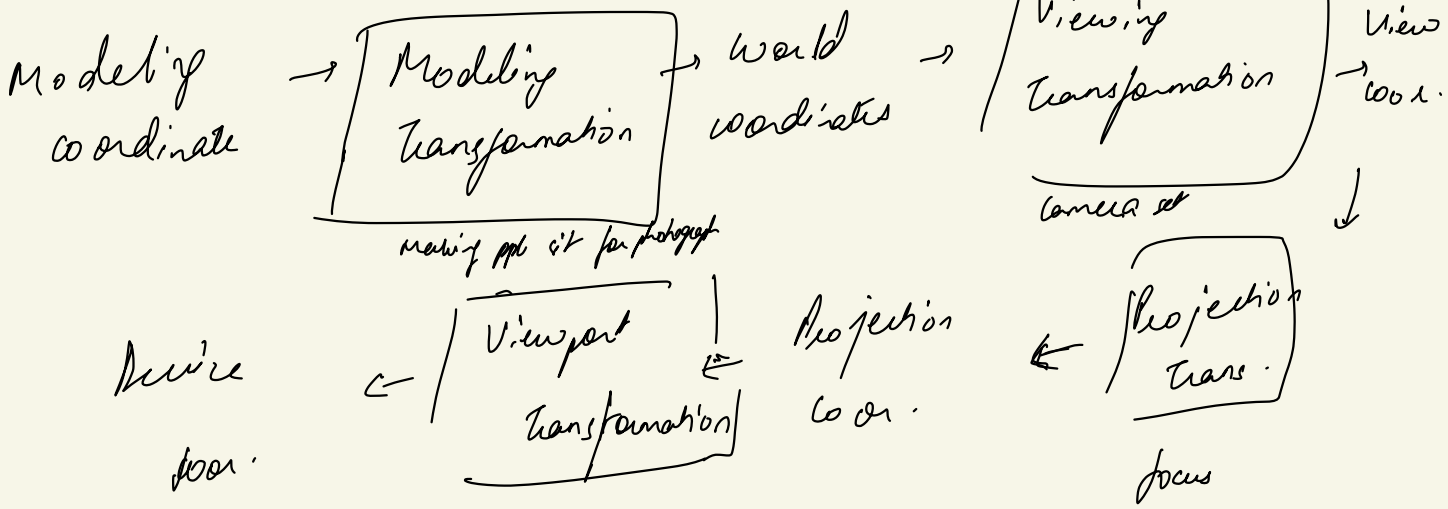 Modeling
coordinate
→
Modeling
Transformation
→
world
coordinates
→
Viewing
Transformation
→
View
coor.
Making ppl sit for photograph
camera set
Projection
Trans.
focus
Projection
coor.
Viewport
Transformation
Device
coor.